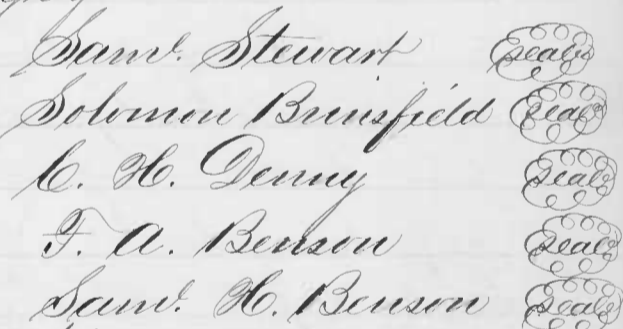 Saml. Stewart seal
Solomon Brinsfield seal
C. H. Denny seal
F. A. Benson seal
Saml. H. Benson seal